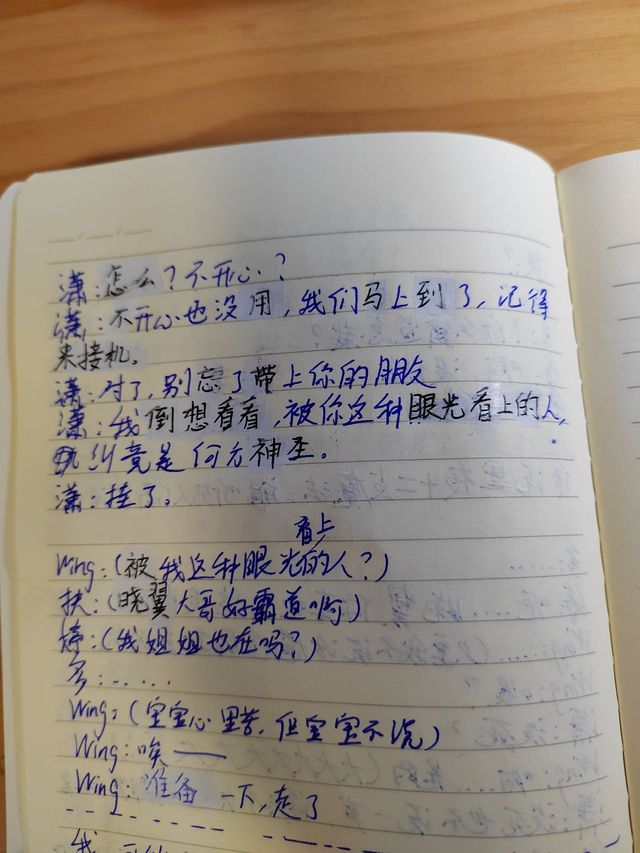 潇:怎么?不开心?
潇:不开心也没用,我们马上到了,记得
来接机。
潇:对了,别忘了带上你的朋友
潇:我倒想看看,被你这种眼光看上的人,
究竟是何方神圣。
潇:挂了。
看上
Wing:(被我这种眼光的人?)
扶:(晓翼大哥好霸道啊)
婷:(我姐姐也在吗?)
多:……
Wing:(宝宝心里苦,但宝宝不说)
Wing:唉——
Wing:准备一下,走了